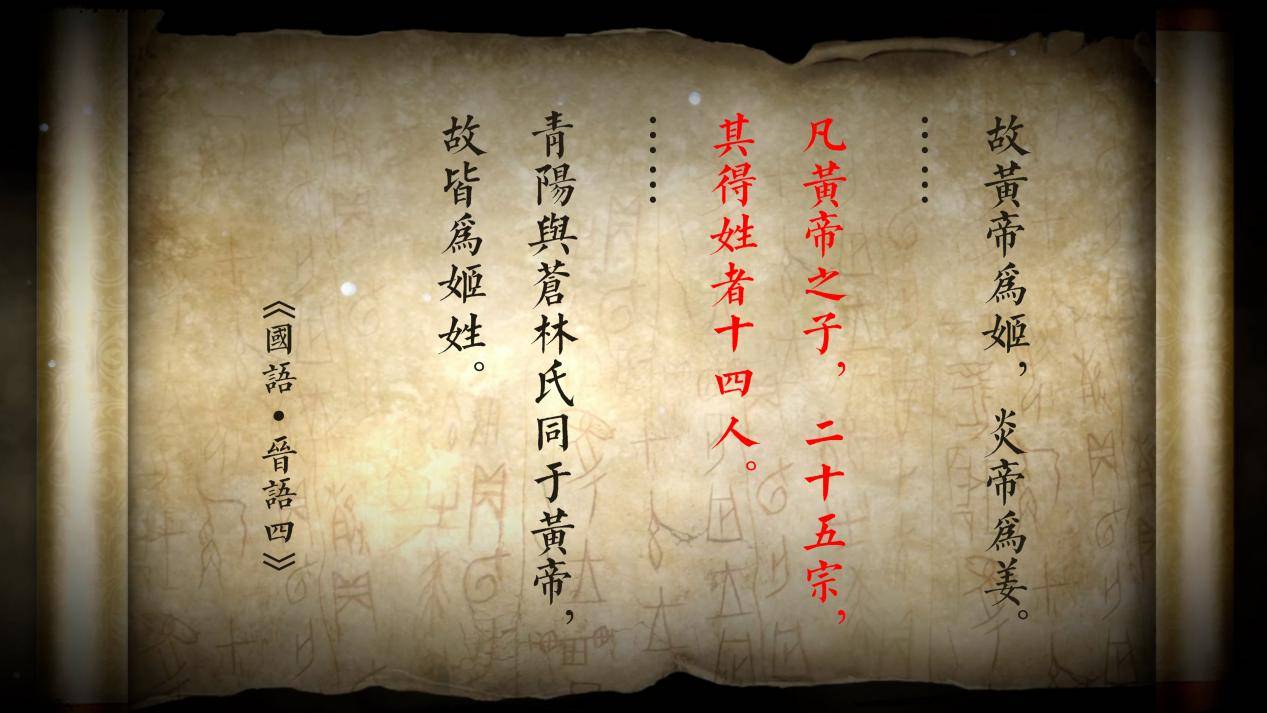 故黃帝爲姬，炎帝爲姜。
……
凡黃帝之子，二十五宗，
其得姓者十四人。
……
青陽與蒼林氏同于黃帝，
故皆爲姬姓。
《國語•晉語四》